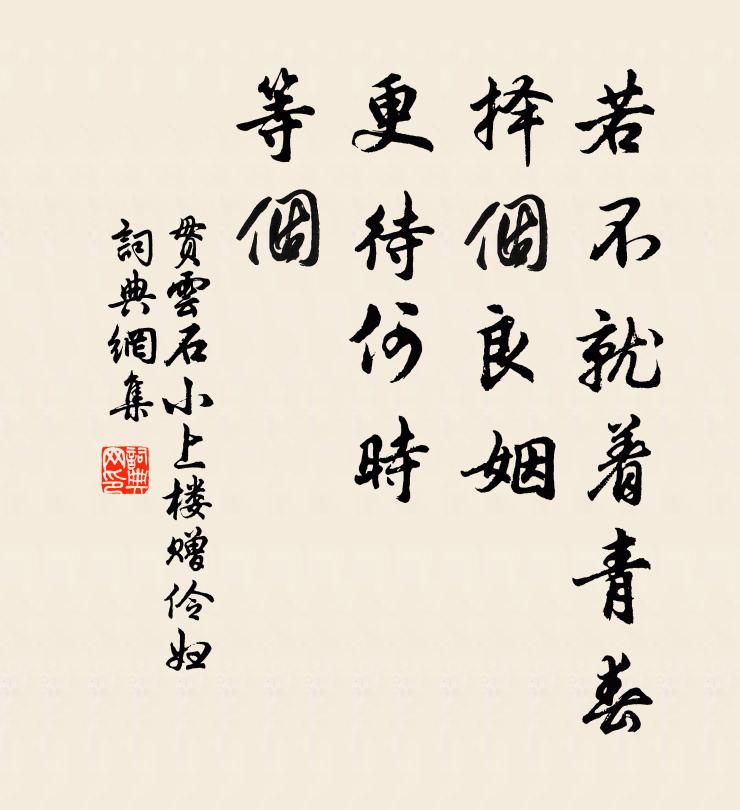 若不就着青春
择個良姻
更待何時
等個
贯雲石小上楼赠伶妇
詞典網集
詞典网印